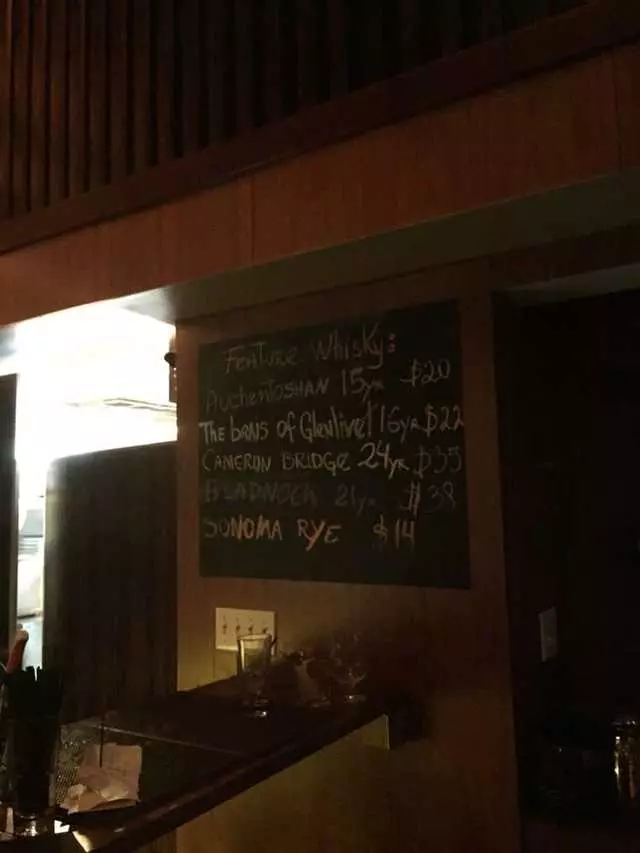 Feature Whisky:
Auchentoshan 15yr $20
The brns of Glenlivet 16yr $22
Cameron Bridge 24yr $35
Bladnoch 21yr $38
Sonoma Rye $14